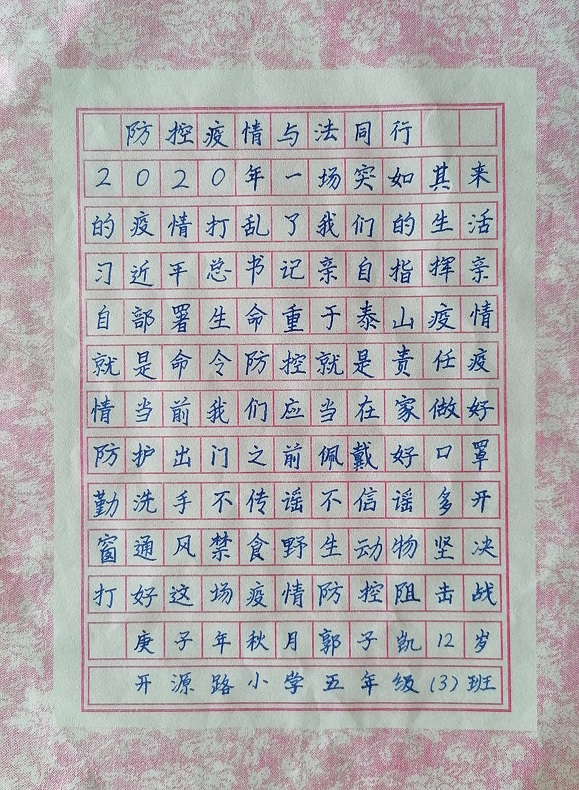 防控疫情与法同行
2020年一场突如其来
的疫情打乱了我们的生活
习近平总书记亲自指挥亲
自部署生命重于泰山疫情
就是命令防控就是责任疫
情当前我们应当在家做好
防护出门之前佩戴好口罩
勤洗手不传谣不信谣多开
窗通风禁食野生动物坚决
打好这场疫情防控阻击战
庚子年秋月郭子凯12岁
开源路小学五年级(3)班